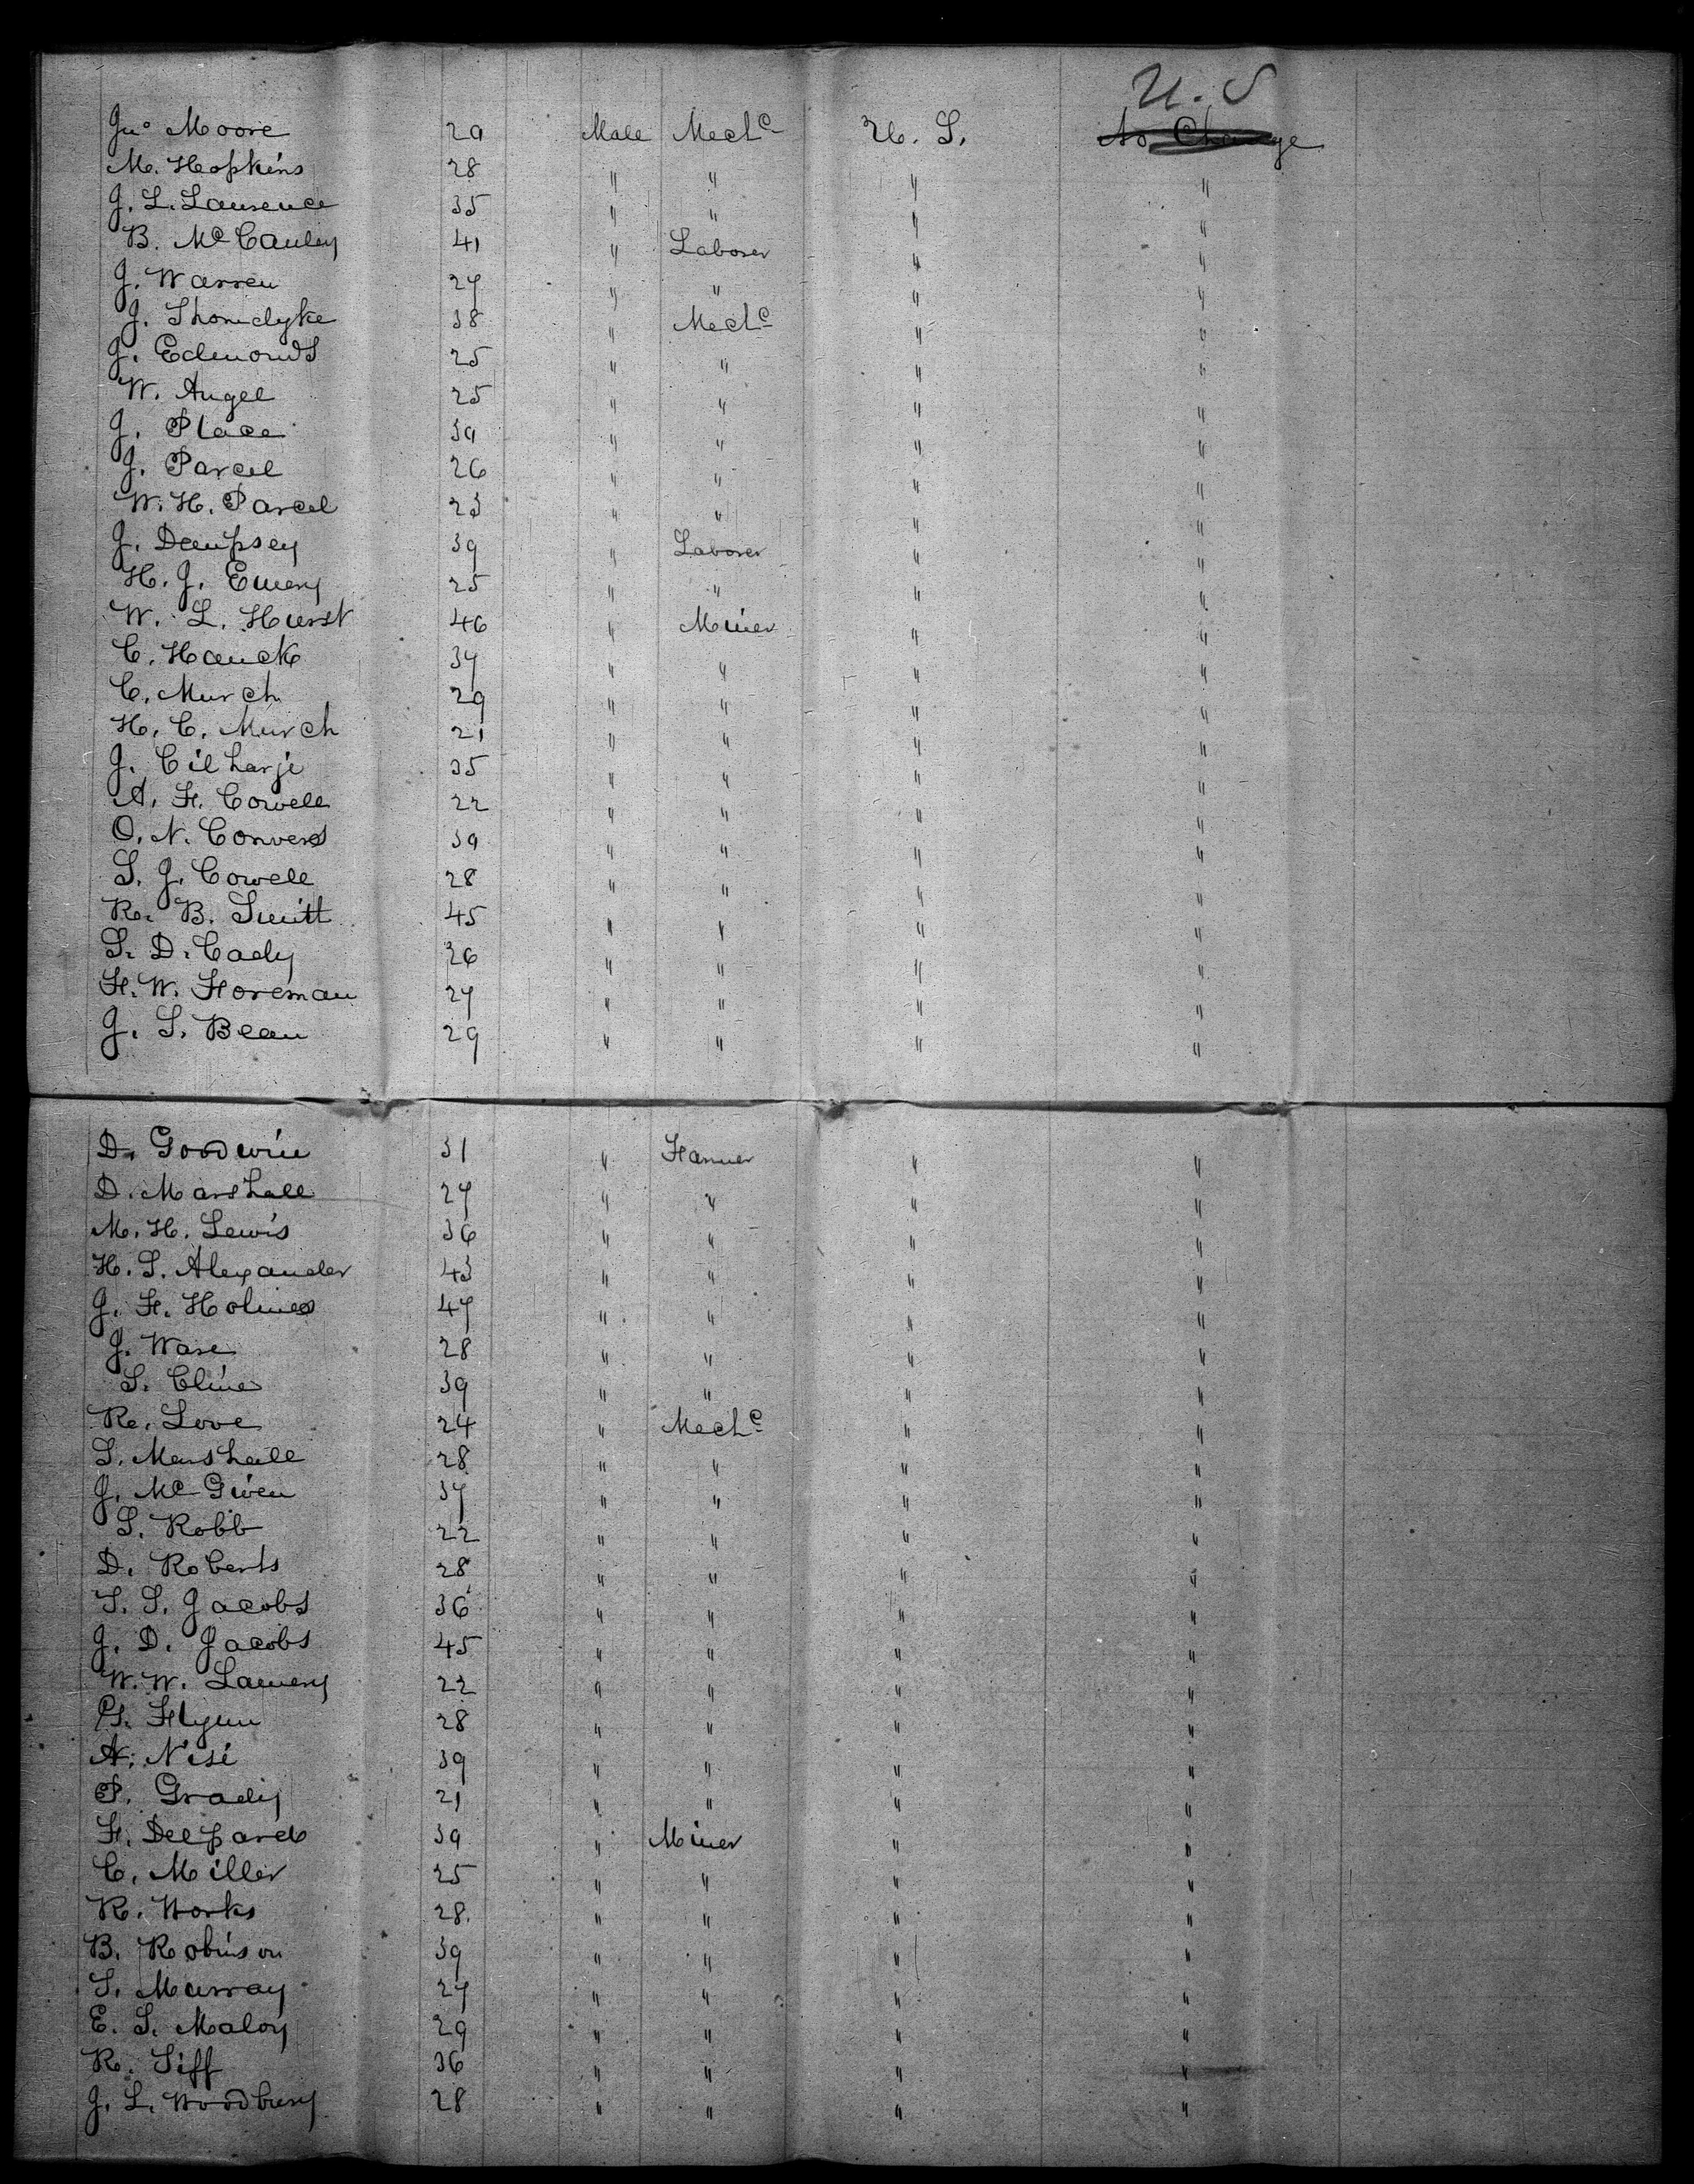 U. S
Jno Moore 29 Male Mechc U. S. No Change
M. Hopkins 28 " " " "
J. L. Laurence 35 " " " "
B. McCauley 41 " Laborer " "
J. Warren 27 " " " "
J. Thorndyke 38 " Mechc " "
J. Edmonds 25 " " " "
W. Angel 25 " " " "
J. Place 39 " " " "
J. Parcel 26 " " " "
W. H. Parcel 23 " " " "
J. Dempsey 39 " Laborer " "
H. J. Emery 25 " " " "
W. L. Hurst 46 " Miner " "
C. Hauck 37 " " " "
C. Murch 29 " " " "
H. C. Murch 21 " " " "
J. 35 " " " "
A. F. Cowell 22 " " " "
O. N. Convers 39 " " " "
S. J. Cowell 28 " " " "
R. B. Smitt 45 " " " "
S. D. Cady 26 " " " "
F. W. Foreman 27 " " " "
J. S. Bean 29 " " " "
D. Goodwin 31 " Farmer " "
D. Marshall 27 " " " "
M. H. Lewis 36 " " " "
H. S. Alexander 43 " " " "
J. F. Holmes 47 " " " "
J. Ware 28 " " " "
S. Cline 39 " " " "
R. Love 24 " Mechc " "
S. Marshall 28 " " " "
J. McGiven 37 " " " "
S. Robb 22 " " " "
D. Roberts 28 " " " "
T. S. Jacobs 36 " " " "
J. D. Jacobs 45 " " " "
W. W. Lamery 22 " " " "
G. Flynn 28 " " " "
A. Nisi 39 " " " "
P. Grady 21 " " " "
F. 39 " Miner " "
C. Miller 25 " " " "
R. Works 28 " " " "
B. Robinson 39 " " " "
T. Murray 27 " " " "
E. S. Maloy 29 " " " "
R. Tiff 36 " " " "
J. L. Woodbury 28 " " " "